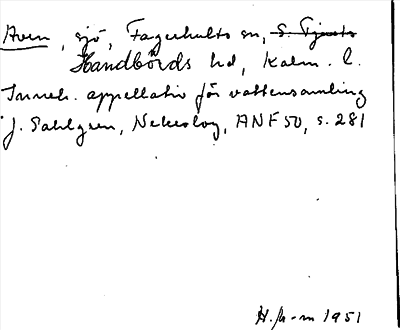 Aven, sjö, Fagerhults sn, S. Tjusts
Handbörds hd, Kalm. l.
Inneh. appellativ för vattensamling
J. Sahlgren, Nekrolog, ANF 50, s. 281
1951